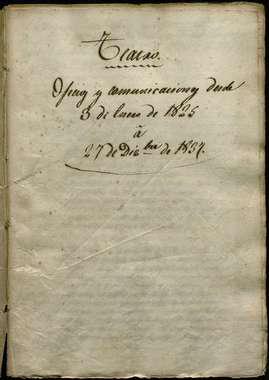 Teatro.
Ofics y comunicaciones desde
3 de Enero de 1825
á
27 de Disbre de 1837.